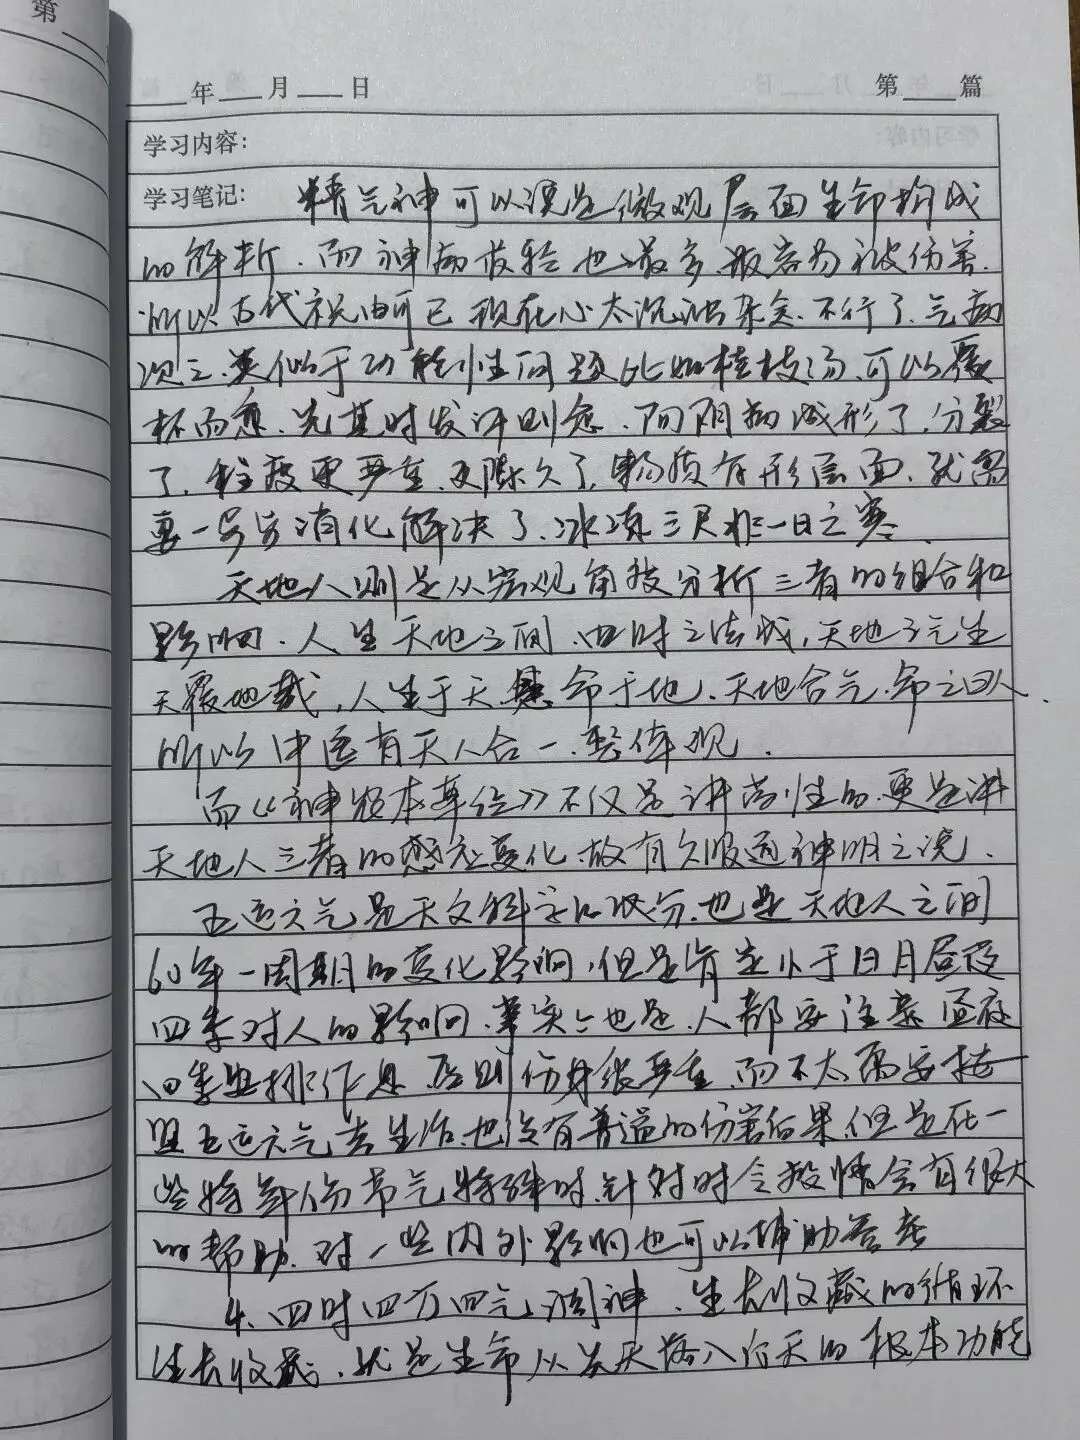 第
年 月 日 第 篇
学习内容:
学习笔记: 精气神可以说是微观层面生命构成
的解析.而神病最轻也最多.最容易被伤害.
所以古代祝由可已 现在心太沉浊杂念.不行了.气病
次之.类似于功能性问题 比如桂枝汤.可以覆
杯而愈.先其时发汗则愈.而阴病成形了.分裂
了.程度更严重.更陈久了.物质有形层面.就需
要一步步消化解决了.冰冻三尺非一日之寒.
天地人则是从宏观角度分析三者的组合和
影响.人生天地之间.四时之法成,天地之气生
天覆地载,人生于天 悬命于地.天地合气.命之曰人.
所以中医有天人合一.整体观.
而《神农本草经》不仅是讲药性的.更是讲
天地人三者的感应变化.故有久服通神明之说.
五运六气是天文解读的成分.也是天地人之间
60年一周期的变化影响,但是肯定小于日月昼夜
四季对人的影响.事实上也是.人都要注意昼夜
四季安排作息 否则伤身很严重.而不太需要按
照五运六气去生活.也没有普遍的伤害后果.但是在一
些特殊年份节气特殊时.针对时令疫情会有很大
的帮助.对一些内外影响也可以辅助参考
4.四时四方四气调神.生长收藏的循环
生长收藏.就是生命从先天落入后天的根本功能